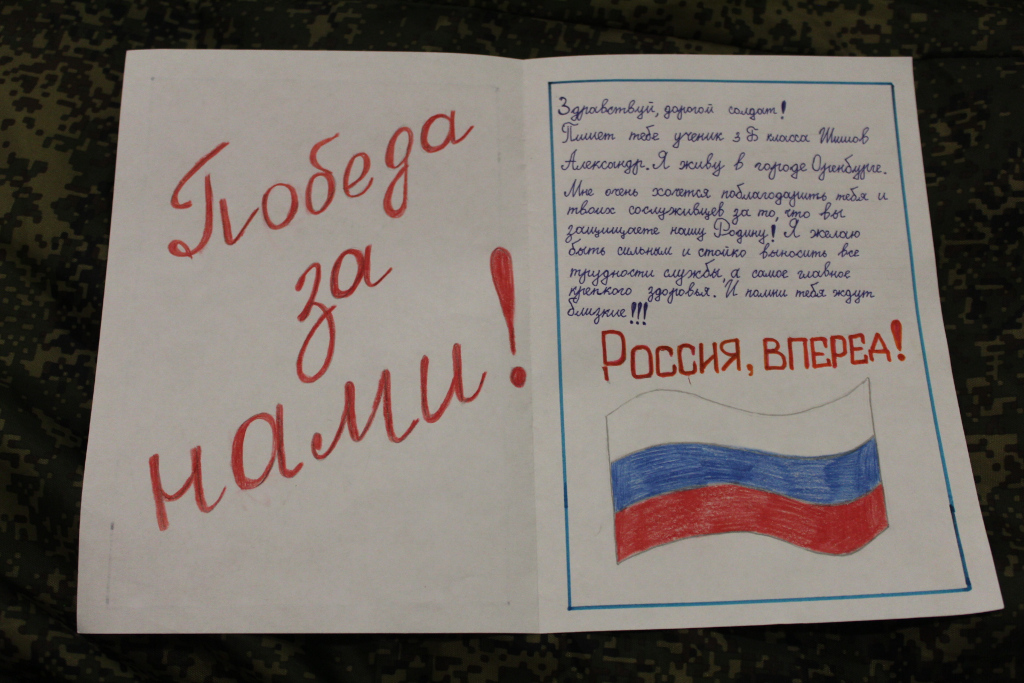 Победа
за
нами!
Здравствуй, дорогой солдат!
Пишет тебе ученик 3 Б класса Шишов
Александр. Я живу в городе Оренбурге.
Мне очень хочется поблагодарить тебя и
твоих сослуживцев за то, что вы
защищаете нашу Родину! Я желаю
быть сильным и стойко выносить все
трудности службы, а самое главное
крепкого здоровья. И помни тебя ждут
близкие!!!
РОССИЯ, ВПЕРЕД!